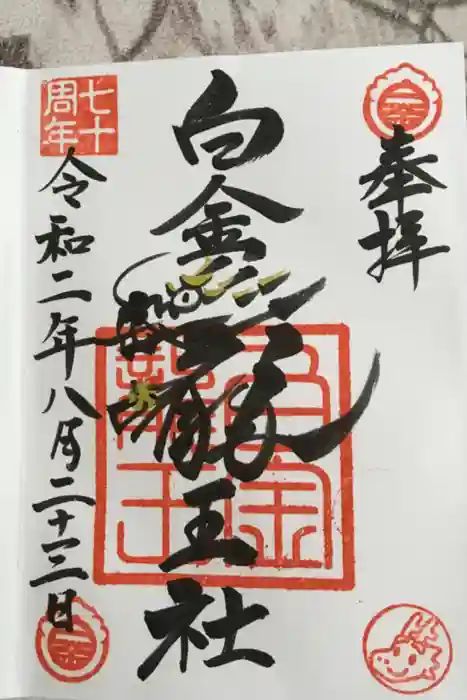 奉拝
白金龍王社
七十
周年
令和二年八月二十三日
白金
龍王